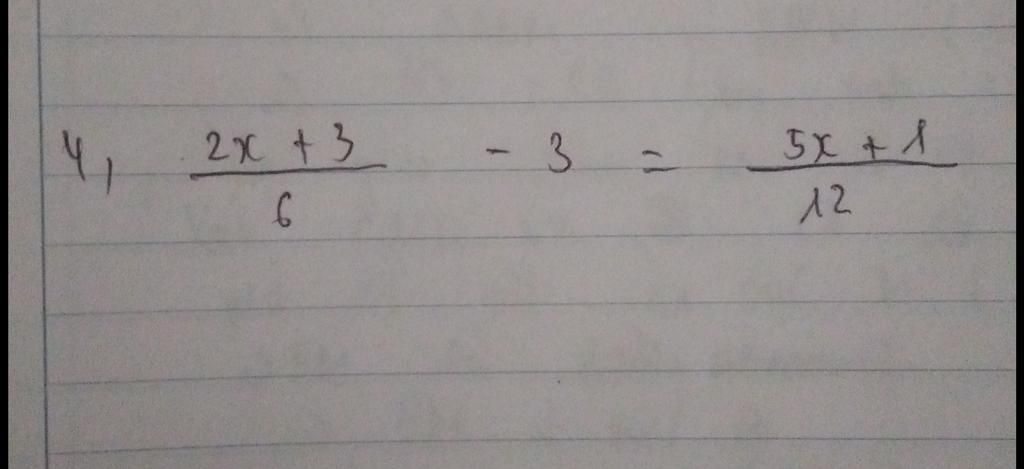 4, 2x + 3 - 3 = 5x + 1
6 12